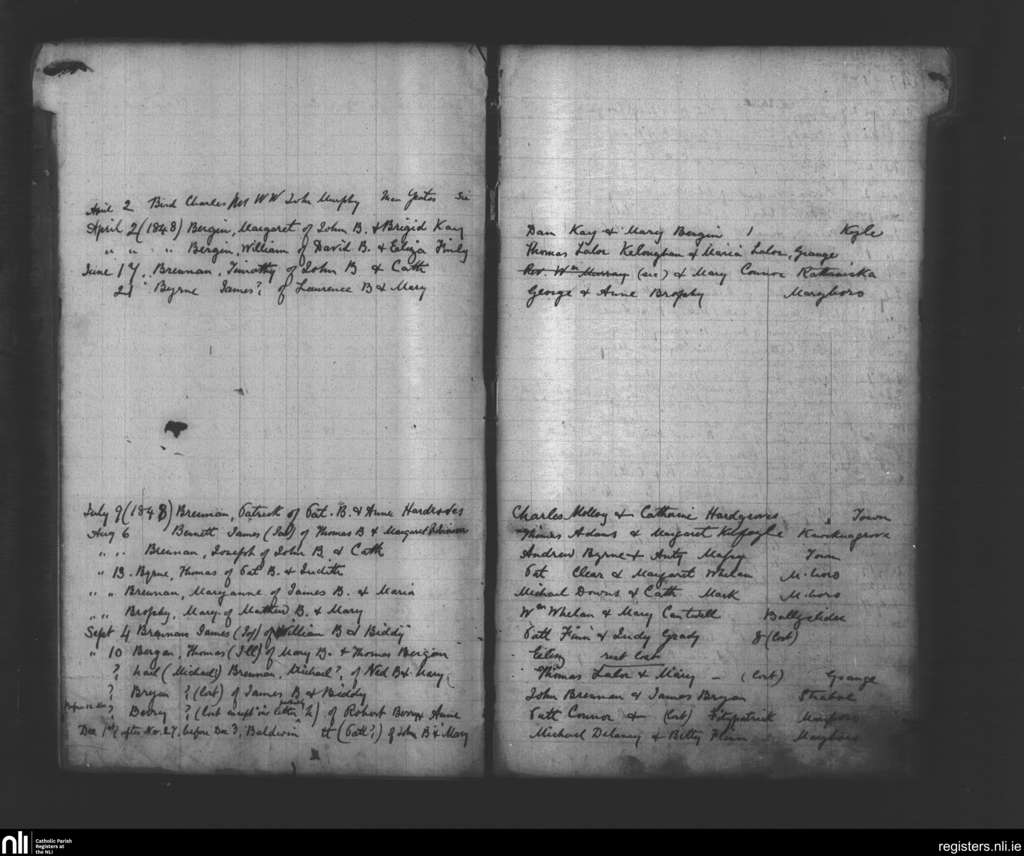 April 2 Bird Charles WW John Murphy
April 2 (1848) Bergin, Margaret of John B. & Brigid Kay Dan Kay & Mary Bergin Kyle
" " " " Bergin, William of David B. & Eliza Finly Thomas Lalor & Maria Lalor, Grange
June 17, Brennan, Timothy of John B & Cath Rev. Wm Murray (sic) & Mary Connor
21 Byrne James? of Laurence B & Mary George & Anne Brophy Maryboro
July 9 (1848) Brennan, Patrick of Pat. B. & Anne Hardroves Charles Molloy & Catharine Hardgroves Town
Aug 6 Bennett James of Thomas B & Margaret Thomas Adams & Margaret Knocknagrove
" " Brennan, Joseph of John B. & Cath Andrew Byrne & Anty Town
" 13. Byrne, Thomas of Pat B. & Judith Pat Clear & Margaret Whelan M-boro
" " Brennan, Maryanne of James B. & Maria Michael Downs & Cath Mack M-boro
" " Brophy, Mary of Mathew B. & Mary Wm Whelan & Mary Cantwell
Sept 4 Brennan James of William B & Biddy Patt Finn & Judy Grady (lost)
" 10 Bergan, Thomas (Ill) of Mary B. & Thomas Bergin rest lost
? had (Michael) Brennan, Michael?, of Ned B & Mary Thomas Lalor & Mary - (lost) Grange
? Bryan ? (lost) of James B & Biddy John Brennan & James Bryan
? Berry ? (lost except in letter h) of Robert Berry & Anne Patt Connor & (lost) Fitzpatrick Maryboro
Dec 1st (after Nov. 27, before Dec 3, Baldwin (Pat?) of John B & Mary Michael Delaney & Betty Finn Maryboro
nli Catholic Parish
Registers at
the NLI
registers.nli.ie